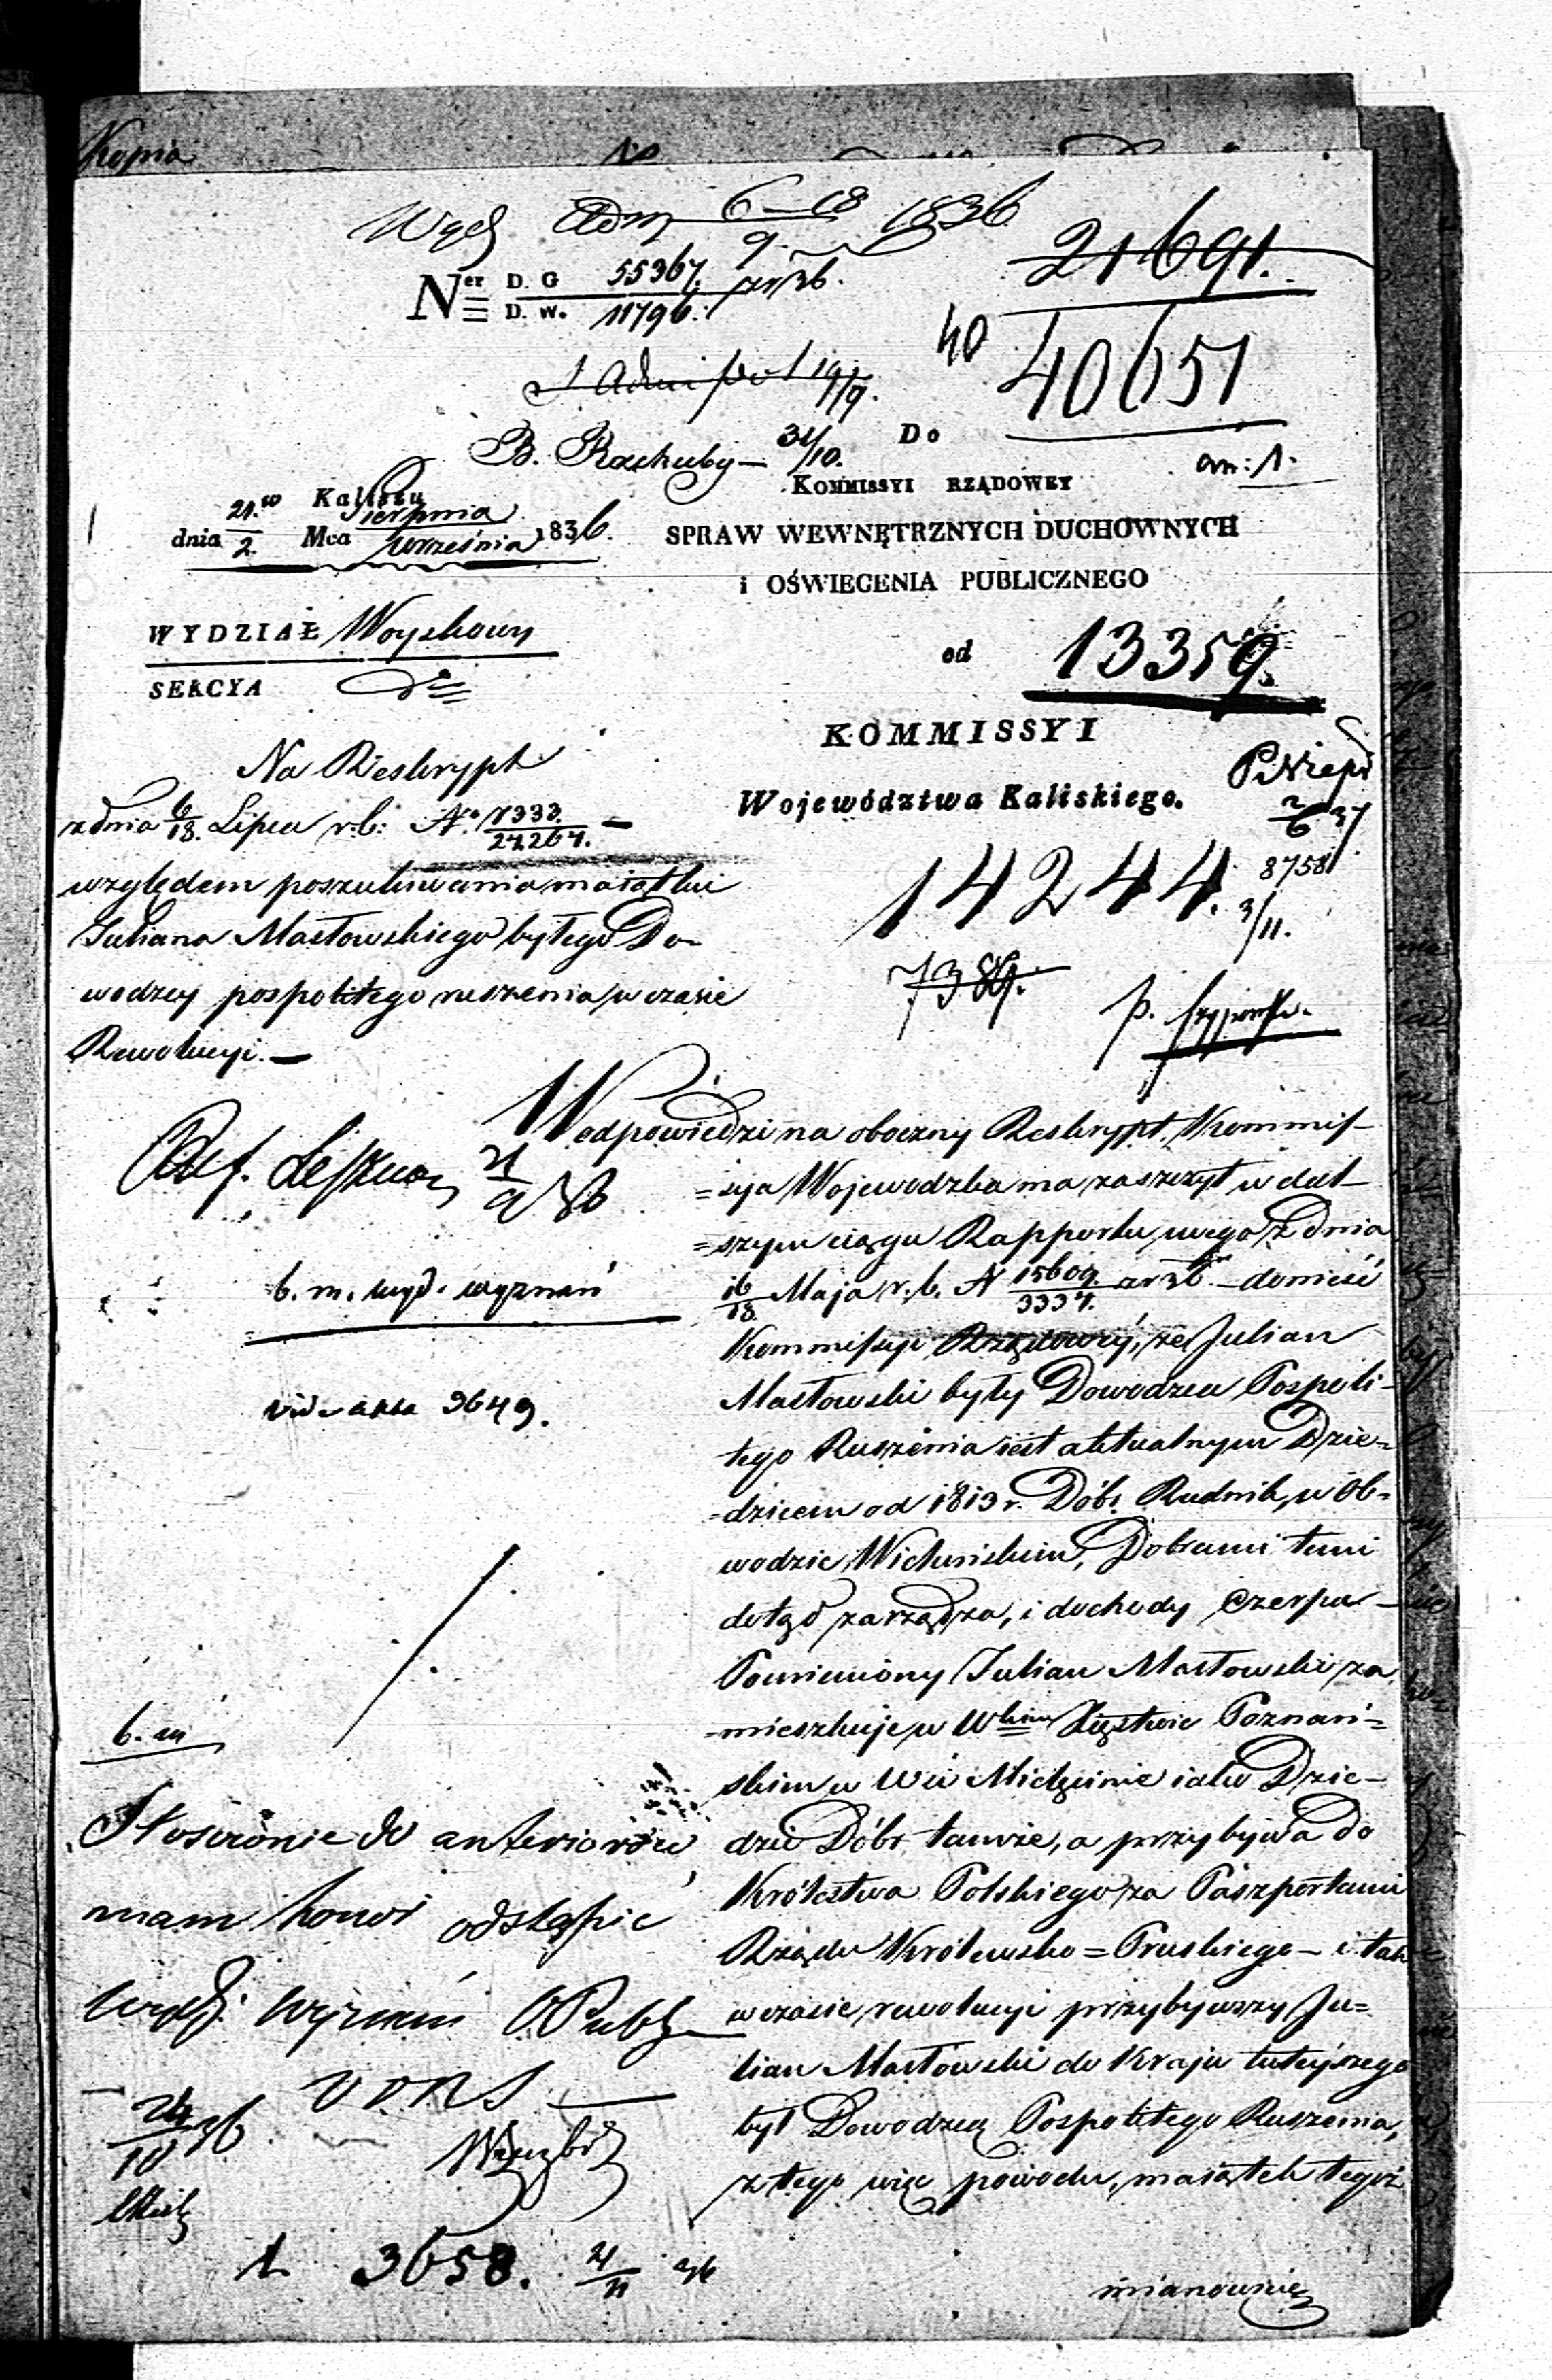 Kopia
Wyd Adm 6–18 1836
9
21691.
Ner D. G 55367. ar 36.
D. W. 11796.
40 40651
19/9.
B. Rachuby — 31/10.
Do
an: 1.
KOMMISSYI RZĄDOWEY
w Kaliszu
dnia 21./2. Mca Sierpnia/Września 1836.
SPRAW WEWNĘTRZNYCH DUCHOWNYCH
i OŚWIECENIA PUBLICZNEGO
WYDZIAŁ Woyskowy
SEKCYA
od 13359.
KOMMISSYI
Województwa Kaliskiego.
2/6 37
14244. 8758
3/11.
7389.
p.
Na Reskrypt
z dnia 6/18. Lipca r. b: No 7333./24264. —
względem poszukiwania maiątku
Juliana Masłowskiego byłego Do-
wodzcy pospolitego ruszenia w czasie
Rewolucyi. —
21/9 36
b. m. wyd. wyznań
vide akta 3649.
W odpowiedzi na oboczny Reskrypt, Kommis-
=syia Wojewodzka ma zaszczyt w dal-
=szym ciągu Rapportu swego z dnia
16/18. Maja r. b. N 15609./3334. ar 36 — donieść
Kommissyi Rządowéy, że Julian
Masłowski były Dowodzca Pospoli-
tego Ruszenia iest aktualnym Dzie=
=dzicem od 1813 r. Dóbr Rudnik, w Ob=
wodzie Wieluńskim, Dobrami temi
dotąd zarządza, i dochody czerpa —
Pomieniony Julian Masłowski za
=mieszkuje w Wkim Xięstwie Poznań=
skim w Wsi iako Dzie-
dzic Dóbr tamże, a przybywa do
Królestwa Polskiego za Paszportami
Rządu Królewsko=Pruskiego — i tak
w czasie rewolucyi przybywszy Ju=
lian Masłowski do Kraju tuteyszego
był Dowodzcą Pospolitego Ruszenia,
z tego więc powodu, maiątek tegoż
mianowicie
b. m
Stosownie do anteriorów
mam honor odstąpić
Wydz: Wyznań O Publ
24/10 36
1. 3658. 4/11 36